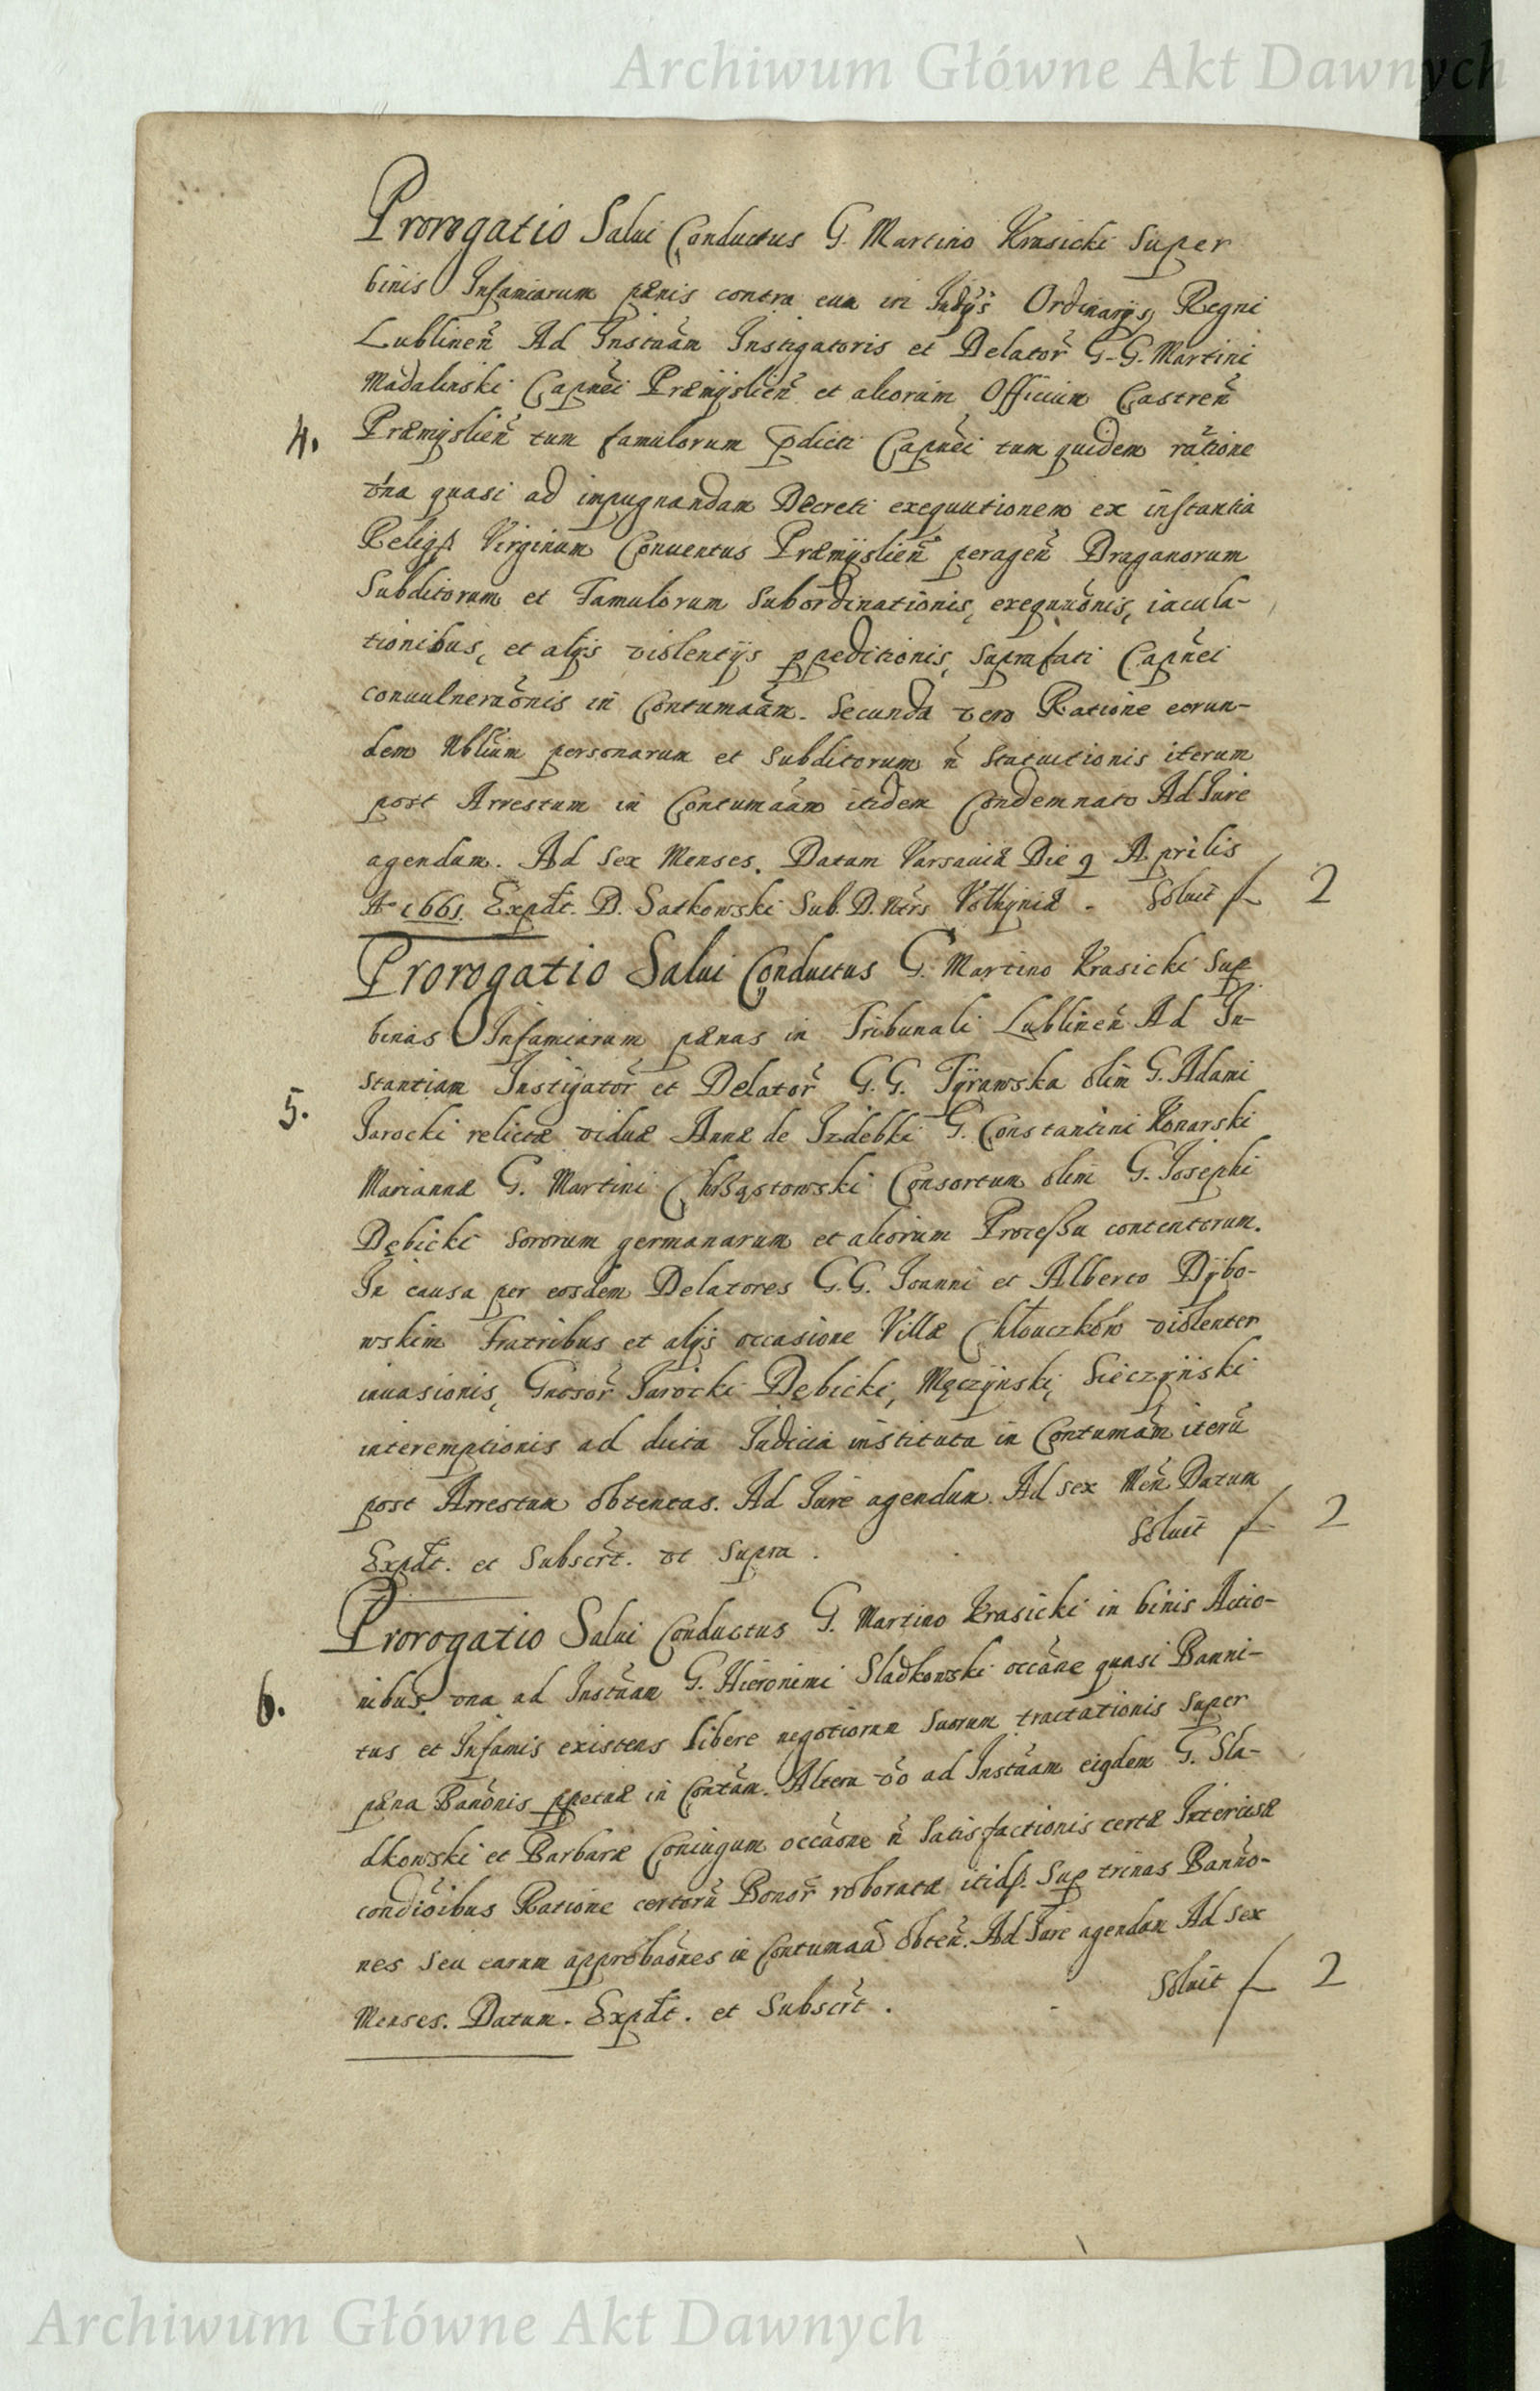 Archiwum Główne Akt Dawnych
Prorogatio Salui Conductus G. Martino Krasicki Super
binis Infamiarum pænis contra eum in Iudijs Ordinarijs Regni
Lublineñ Ad Instnãm Instigatoris et Delator̃ G. G. Martini
Madalinski Capnei Præmÿslieñ et aliorum Officium Castreñ
4. Præmyslieñ tum famulorum pdicti Capnei tum quidem ratione
vna quasi ad impugnandam Decreti exequutionem ex instantia
Virginum Conuentus Præmÿslieñ perageñ Draganorum
Subditorum et Famulorum Subordinationis, exequuõnis, iacula-
tionibus, et alijs violentijs ppeditionis, Suprafati Capnei
conuulneraõnis in Contumaãm. Secunda vero Ratione eorun-
dem Nblium personarum et Subditorum ñ Statuitionis iterum
post Arrestum in Contumaãm itidem Condemnato Ad Iure
agendum. Ad Sex Menses. Datum Varsauiæ Die 9 Aprilis
Ao 1661. Expdt. D. Satkowski Sub. D. Ntrs Volhyniæ. Soluit f 2
Prorogatio Salui Conductus G. Martino Krasicki Sup
binas Infamiarum pænas in Tribunali Lublineñ Ad In-
stantiam Instigator̃ et Delator̃ G. G. Tÿrawska olim G. Adami
5. Jarocki relictæ viduæ Annæ de Izdebki G. Constantini Konarski
Mariannæ G. Martini Chrząstowski Consortum olim G. Iosephi
Dębicki Sororum germanarum et aliorum Processu contentorum.
In causa per eosdem Delatores G. G. Ioanni et Alberto Dÿbo-
wskim Fratribus et alijs occasione Villæ Chłouczków violenter
inuasionis, Gnosor̃ Jarocki Dębicki, Męczÿnski, Sieczÿński
interemptionis ad dicta Iudicia instituta in Contumãm iterũ
post Arrestum obtentas. Ad Iure agendum. Ad sex Meñ Datum
Expdt. et Subscrt. vt Supra. Soluit f 2
Prorogatio Salui Conductus G. Martino Krasicki in binis Actio-
6. nibus vna ad Instnãm G. Hieronimi Sladkowski occãne quasi Banni-
tus et Infamis existens libere negotiorum Suorum tractationis Super
pæna Banõnis ppetuæ in Contãm. Altera vo ad Instnãam eiqdem G. Sla-
dkowski et Barbaræ Coniugum occãone ñ Satisfactionis certæ Intercisæ
condiõibus Ratione certorũ Bonor̃ roboratæ Sup trinas Bannõ-
nes Seu earum approbaõnes in Contumaã obteñ. Ad Iure agendum Ad Sex
Menses. Datum. Expdt. et Subscrt. Soluit f 2
Archiwum Główne Akt Dawnych